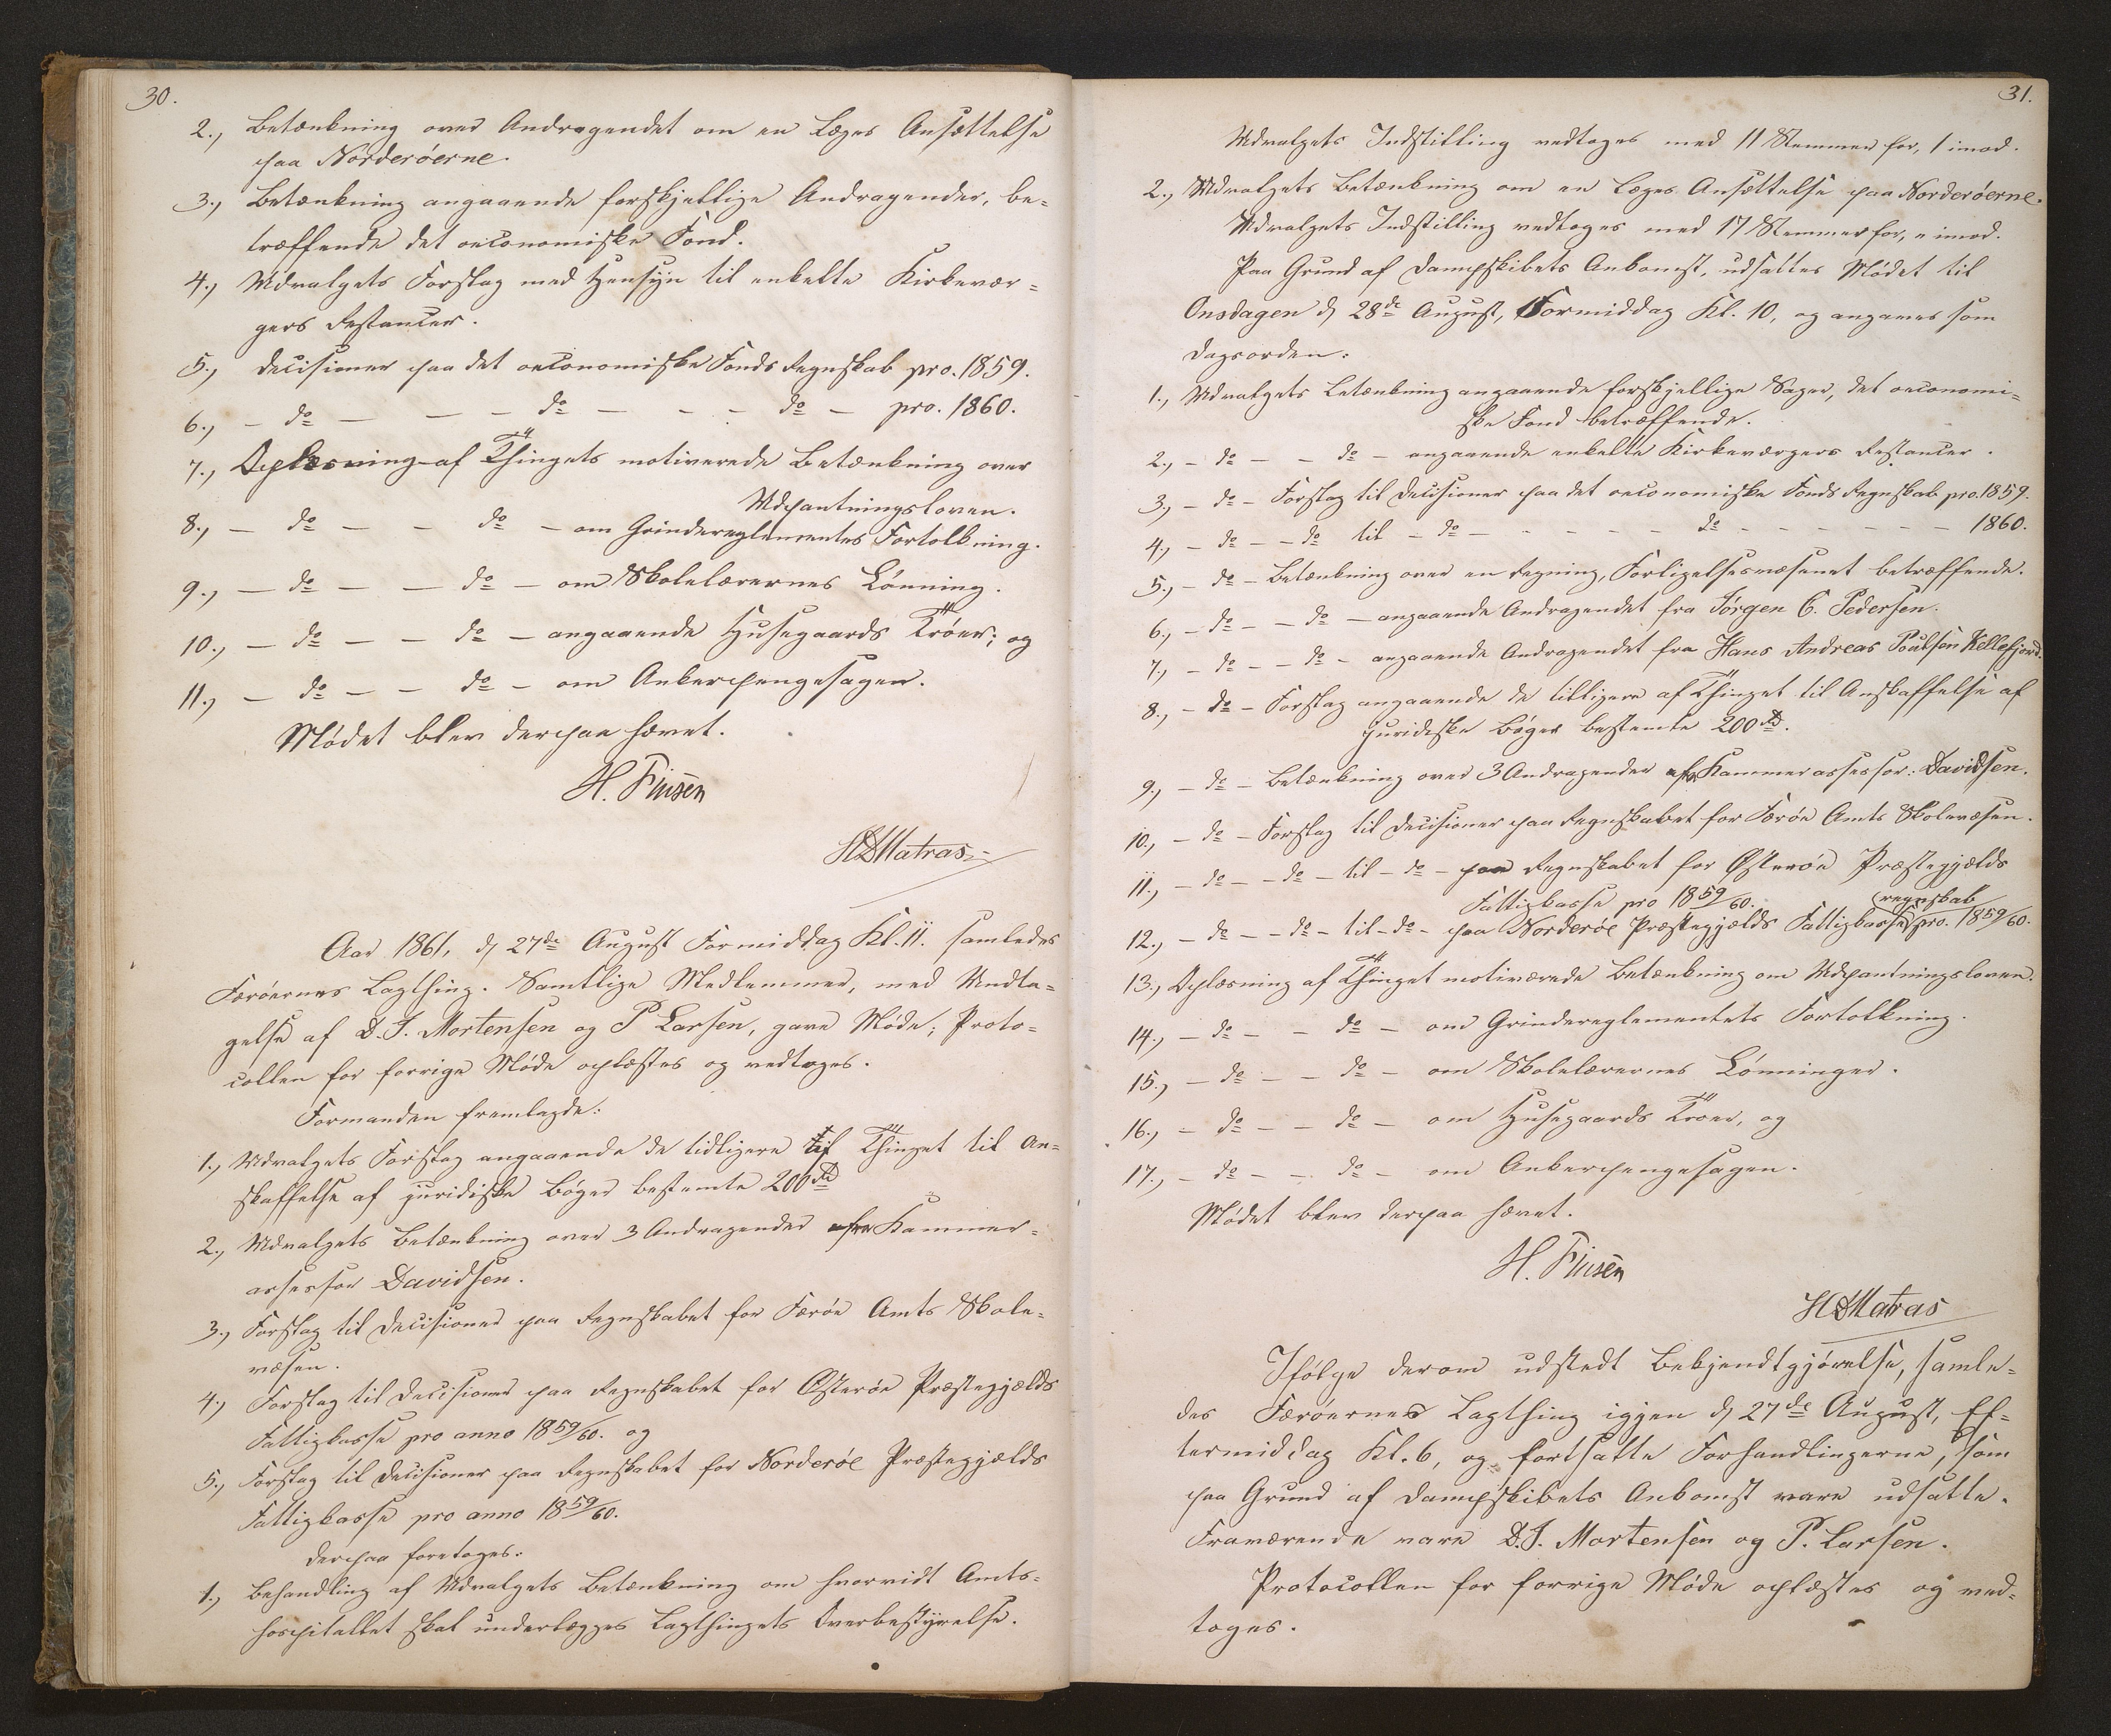 30.
2., Betænkning over Andragendet om en Læges Ansættelse
paa Norderøerne.
3., Betænkning angaaende forskjellige Andragender, be-
træffende det oeconomiske Fond.
4., Udvalgets Forslag med Hensyn til enkelte Kirkevær-
gers Restancer.
5., Decisioner paa det oeconomiske Fonds Regnskab pro. 1859.
6., - do - - - do - - - do - pro. 1860.
7., Oplæsning af Thingets motiverede Betænkning over
Udpantningsloven.
8., - do - - do - om Grindereglementes Fortolkning.
9., - do - - do - om Skolelærernes Lønning.
10., - do - - do - angaaende Husegaards Trøer; og
11., - do - - do - om Ankerpengesagen.
Mødet blev derpaa hævet.
H. Finsen
HDMatras
Aar 1861, d 27de August Formiddag Kl. 11. samledes
Færøernes Lagthing. Samtlige Medlemmer, med Undta-
gelse af D. J. Mortensen og P Larsen, gave Møde; Proto-
collen for forrige Møde oplæstes og vedtoges.
Formanden fremlagde:
1., Udvalgets Forslag angaaende de tidligere af Thinget til An-
skaffelse af juridiske Bøger bestemte 200 Rd
2., Udvalgets Betænkning over 3 Andragender fra Kammer-
assessor Davidsen.
3., Forslag til Decisioner paa Regnskabet for Færøe Amts Skole-
væsen.
4., Forslag til Decisioner paa Regnskabet for Østerøe Præstegjælds
Fattigkasse pro anno 1859/60. og
5., Forslag til Decisioner paa Regnskabet for Norderøe Præstegjælds
Fattigkasse pro anno 1859/60.
Derpaa foretoges:
1., Behandling af Udvalgets Betænkning om hvorvidt Amts-
hospitallet skal underlægges Lagthingets Overbestyrelse.
31.
Udvalgets Indstilling vedtoges med 11 Stemmer for, 1 imod.
2., Udvalgets Betænkning om en Læges Ansættelse paa Norderøerne.
Udvalgets Indstilling vedtoges med 17 Stemmer for, imod.
Paa Grund af Dampskibets Ankomst, udsattes Mødet til
Onsdagen d 28de August, Formiddag Kl. 10, og angaves som
Dagsorden:
1., Udvalgets Betænkning angaaende forskjellige Sager, det oeconomi-
ske Fond betræffende.
2., - do - - do - angaaende enkelte Kirkeværgers Restancer.
3., - do - Forslag til Decisioner paa det oeconomiske Fonds Regnskab pro. 1859.
4., - do - - do til - do - - - - - do - - - - - - 1860.
5., - do - Betænkning over en Regning, Forligelsesvæsenet betræffende.
6., - do - - do - angaaende Andragendet fra Jørgen C. Pedersen.
7., - do - - do - angaaende Andragendet fra Hans Andreas Poulsen Kellefjord.
8., - do - Forslag angaaende de tidligere af Thinget til Anskaffelse af
juridiske Bøger bestemte 200 Rd.
9., - do - Betænkning over 3 Andragender fra Kammerassessor: Davidsen.
10., - do - Forslag til Decisioner paa Regnskabet for Færøe Amts Skolevæsen.
11., - do - - do - til - do - paa Regnskabet for Østerøe Præstegjælds
Fattigkasse pro 1859/60.
12., - do - - do - til - do - paa Norderøe Præstegjælds Fattigkasseregnskab pro. 1859/60.
13., Oplæsning af Thinget motiverede Betænkning om Udpantningsloven.
14., - do - - do - om Grindereglementets Fortolkning.
15., - do - - do - om Skolelærernes Lønninger.
16., - do - - do - om Husegaards Trøer, og
17., - do - - do - om Ankerpengesagen.
Mødet blev derpaa hævet.
H. Finsen
HDMatras
Ifølge derom udstedt Bekjendtgjørelse, samle-
des Færøernes Lagthing igjen d 27de August, Ef-
termiddag Kl. 6, og fortsatte Forhandlingerne, som
paa Grund af Dampskibets Ankomst vare udsatte.
Fraværende vare D. J. Mortensen og P. Larsen.
Protocollen for forrige Møde oplæstes og ved-
toges.